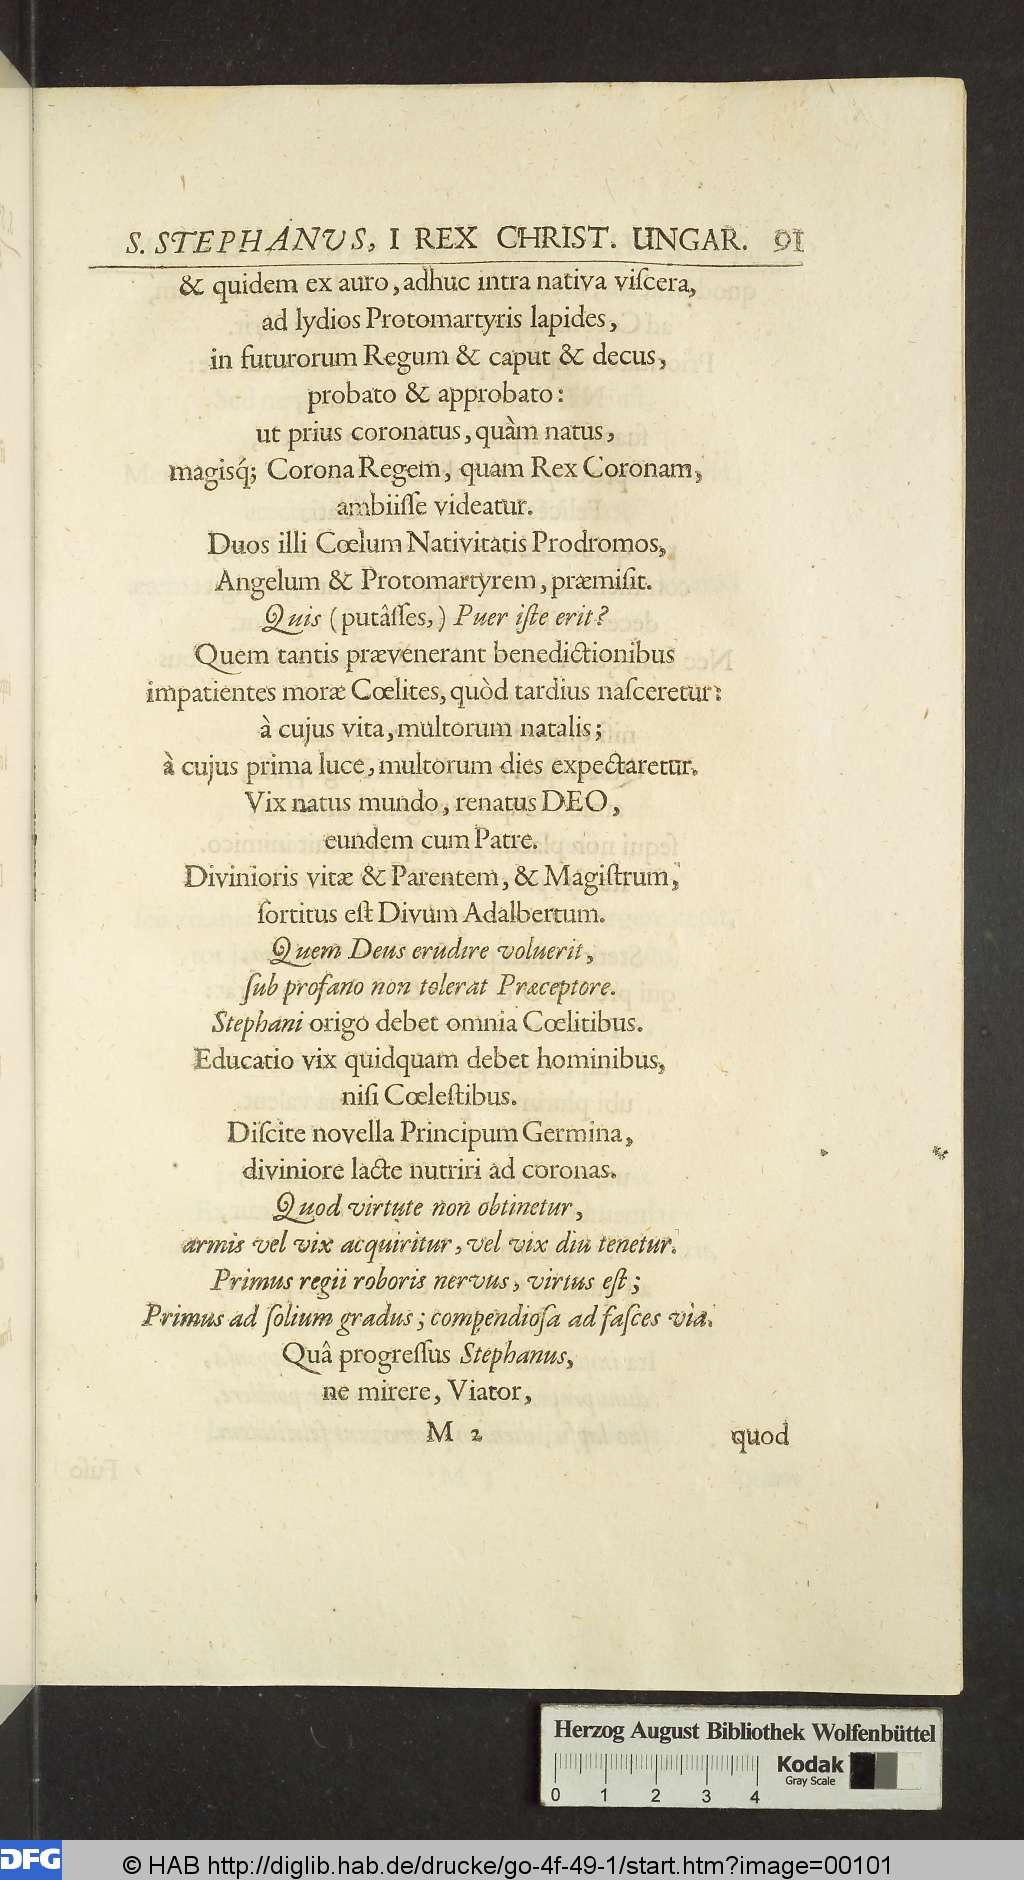 S. STEPHANVS, I REX CHRIST. UNGAR. 91
& quidem ex auro, adhuc intra nativa viſcera,
ad lydios Protomartyris lapides,
in futurorum Regum & caput & decus,
probato & approbato:
ut prius coronatus, quàm natus,
magisq́; Corona Regem, quam Rex Coronam,
ambiiſſe videatur.
Duos illi Cœlum Nativitatis Prodromos,
Angelum & Protomartyrem, præmiſit.
Quis (putâſſes,) Puer iſte erit?
Quem tantis prævenerant benedictionibus
impatientes moræ Cœlites, quòd tardius naſceretur:
à cujus vita, multorum natalis;
à cujus prima luce, multorum dies expectaretur.
Vix natus mundo, renatus DEO,
eundem cum Patre.
Divinioris vitæ & Parentem, & Magiſtrum,
ſortitus eſt Divum Adalbertum.
Quem Deus erudire voluerit,
ſub profano non tolerat Præceptore.
Stephani origo debet omnia Cœlitibus.
Educatio vix quidquam debet hominibus,
niſi Cœleſtibus.
Diſcite novella Principum Germina,
diviniore lacte nutriri ad coronas.
Quod virtute non obtinetur,
armis vel vix acquiritur, vel vix diu tenetur.
Primus regii roboris nervus, virtus eſt;
Primus ad ſolium gradus; compendioſa ad faſces via.
Quâ progreſſus Stephanus,
ne mirere, Viator,
M 2 quod
Herzog August Bibliothek Wolfenbüttel
Kodak
Gray Scale
0 1 2 3 4
DFG © HAB http://diglib.hab.de/drucke/go-4f-49-1/start.htm?image=00101